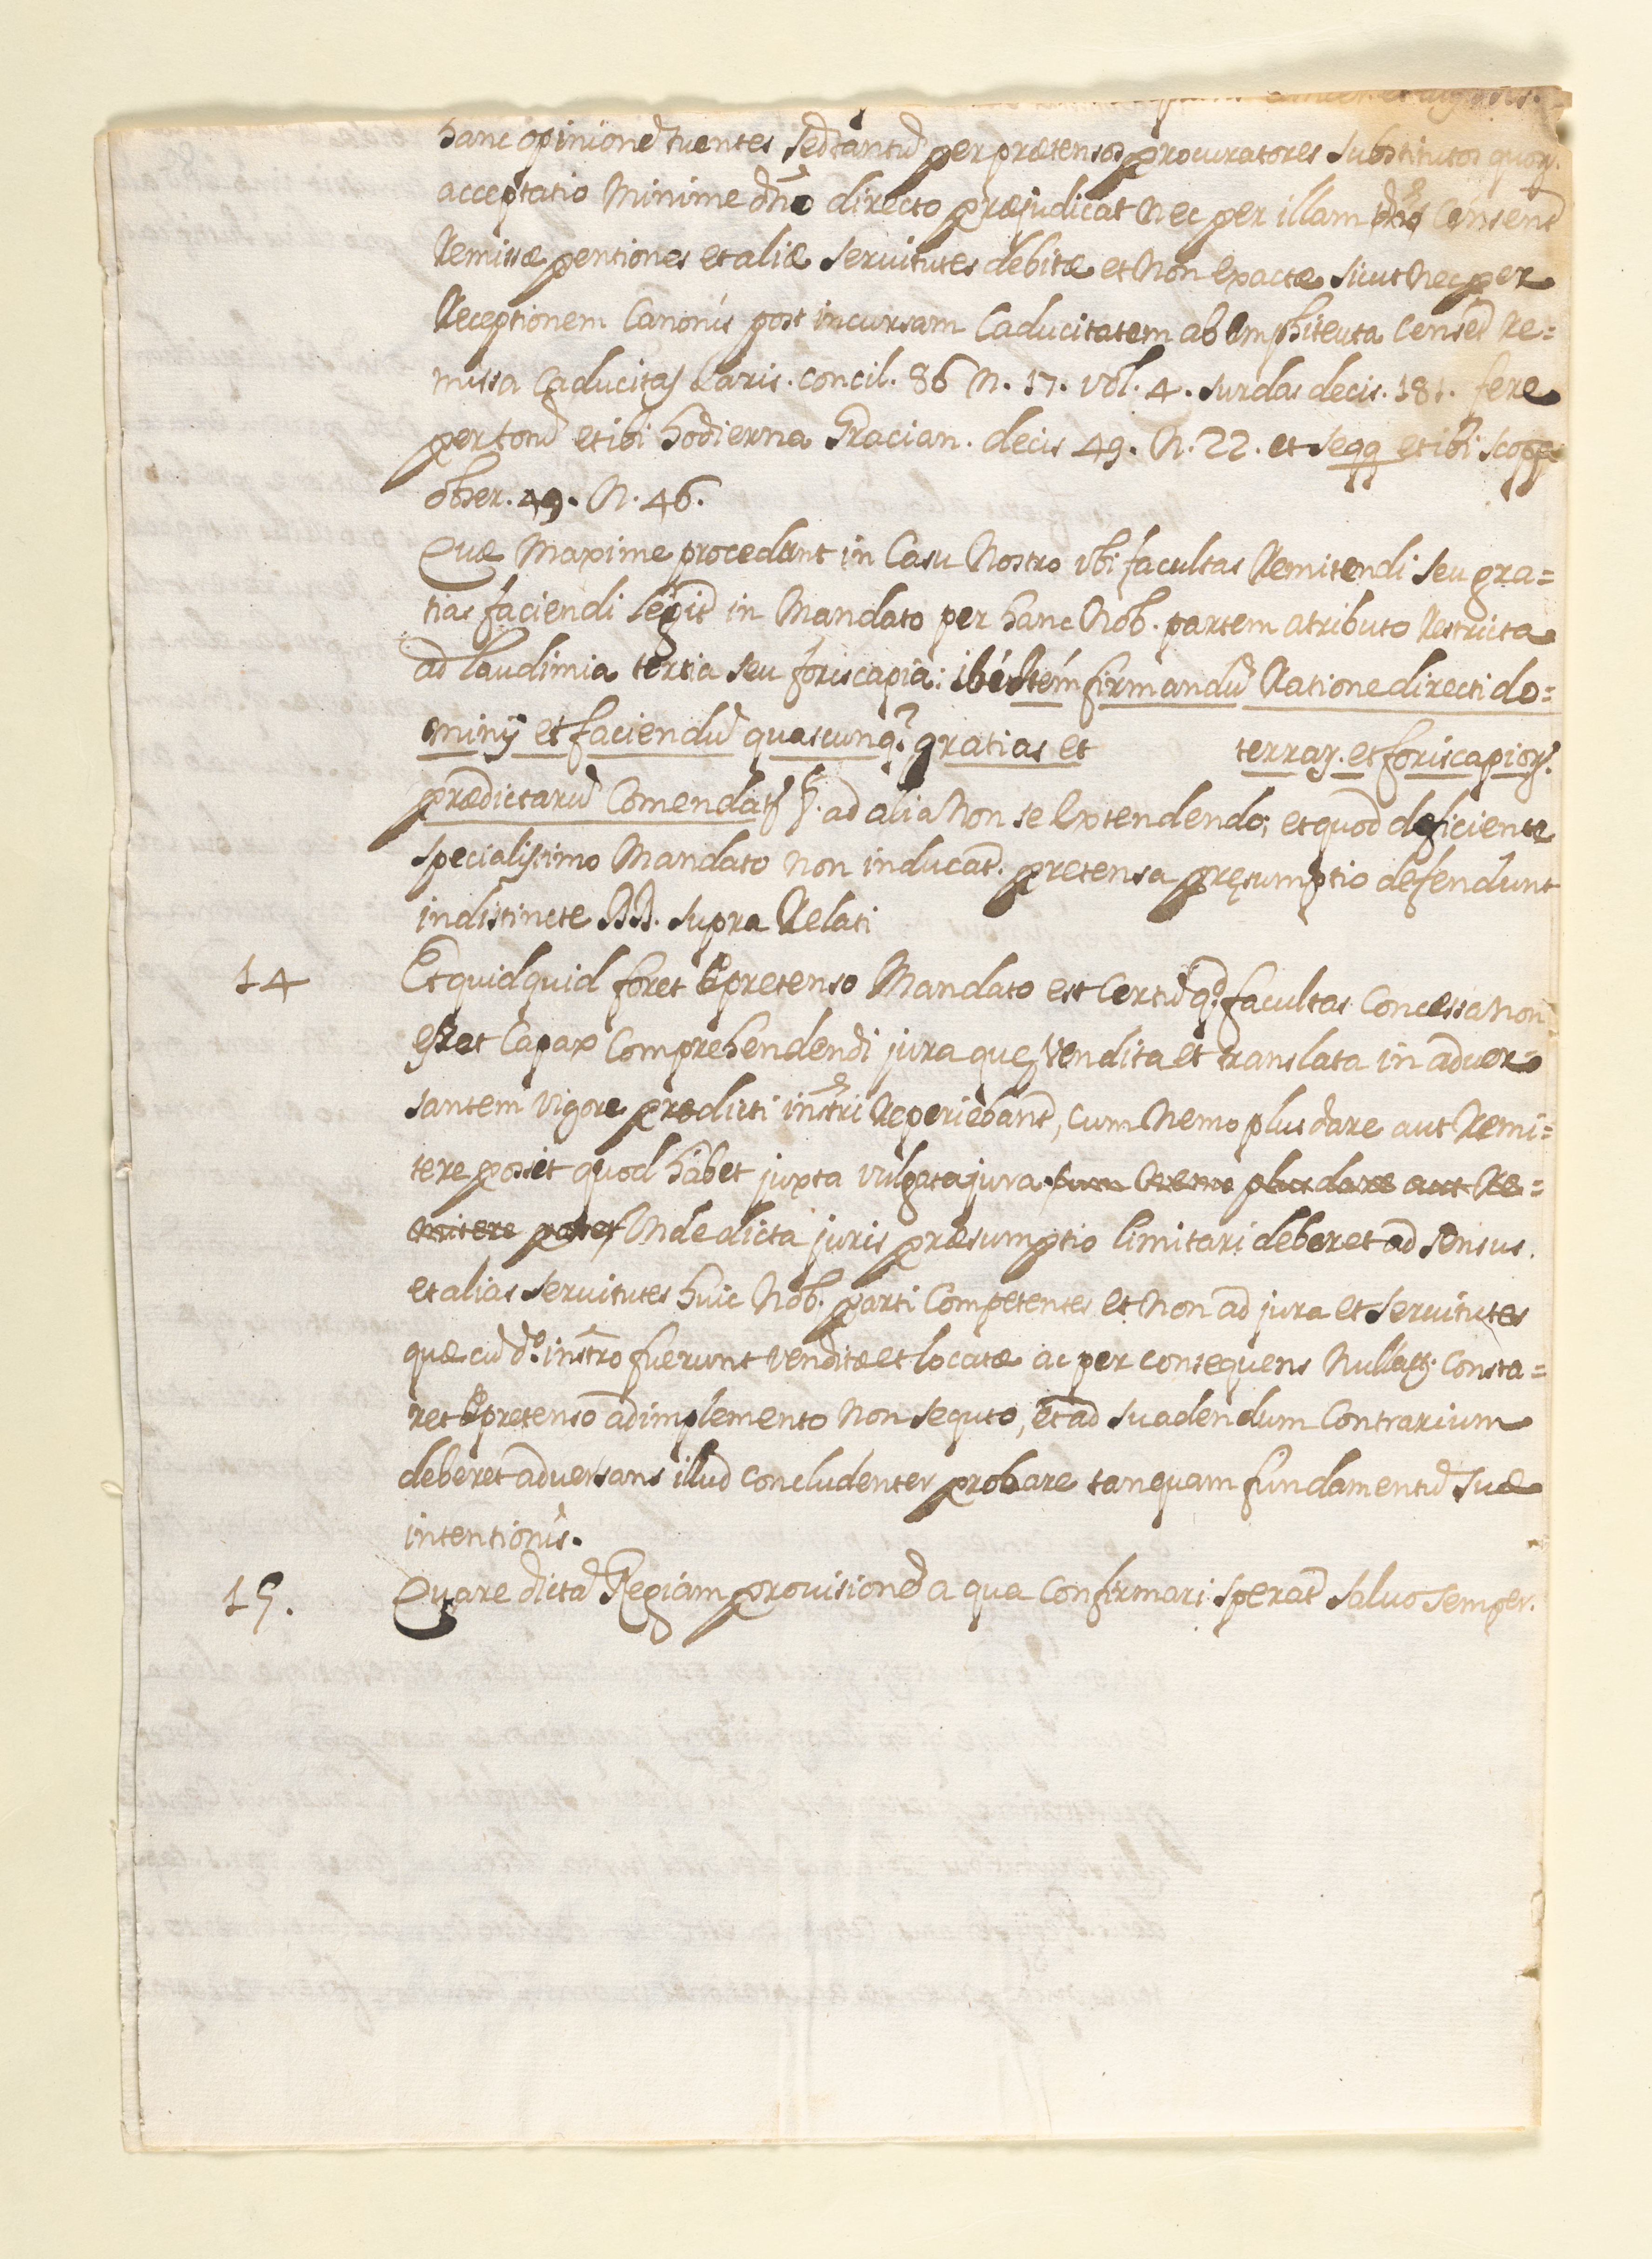 hanc opinionē tuentes sed tantū per prætensos procuratores substitutos quorȝ.
acceptatio Minime dño directo præjudicat Nec per illam Censent̃
Remissæ pentiones et aliæ servitutes debitæ et Non Exactæ sicut Nec per
Receptionem Canonis post incursam Caducitatem ab Emphiteuta Censet̃ Re=
missa Caducitas Paris. concil. 86 N. 17. vol. 4. Surdas decis. 181. fere
per totū et ibi hodierna Gracian. decis 49. N. 22. et seqq et ibi. scopp
obser. 49. N. 46.
Quæ Maxime procedunt in Casu Nostro ubi facultas Remitendi seu gra=
tias faciendi legit̃ in Mandato per hanc Nob. partem atributo Restricta
ad laudimia tertia seu foriscapia: ibi Item firmandū Ratione directi do=
miny et faciendū quascunq. gratias et terrarȝ. et foriscapiorȝ.
prædictarū Comendarȝ ad alia Non se Extendendo; et quod deficiente
specialissimo Mandato Non inducat̃. pretensa presumptio defendunt
indistincte DD. supra Relati
14 Et quidquid foret de pretenso Mandato est Certū qd. facultas Concessa Non
esset Capax Comprehendendi jura quæ Vendita et translata in adver=
santem Vigore prædicti instri Reperiebant̃, cum Nemo plus dare aut Remi=
tere posset quod habet juxta vulgata jura. cum Nemo plus dare aut Re=
mitere posset Unde dicta juris præsumptio limitari deberet ad sensus.
et alias servitutes huic Nob. parti Competentes et Non ad jura et servitutes
quæ cū do. instro fuerunt Venditæ et locatæ ac per consequens Nullatȝ. Consta=
ret de pretenso adimplemento Non sequto, et ad suadendum Contrarium
deberet adversans illud concludenter probare tanquam fundamentū suæ
intentionis.
15. Quare dictā Regiam provisionē a qua Confirmari sperat̃ salvo semper.